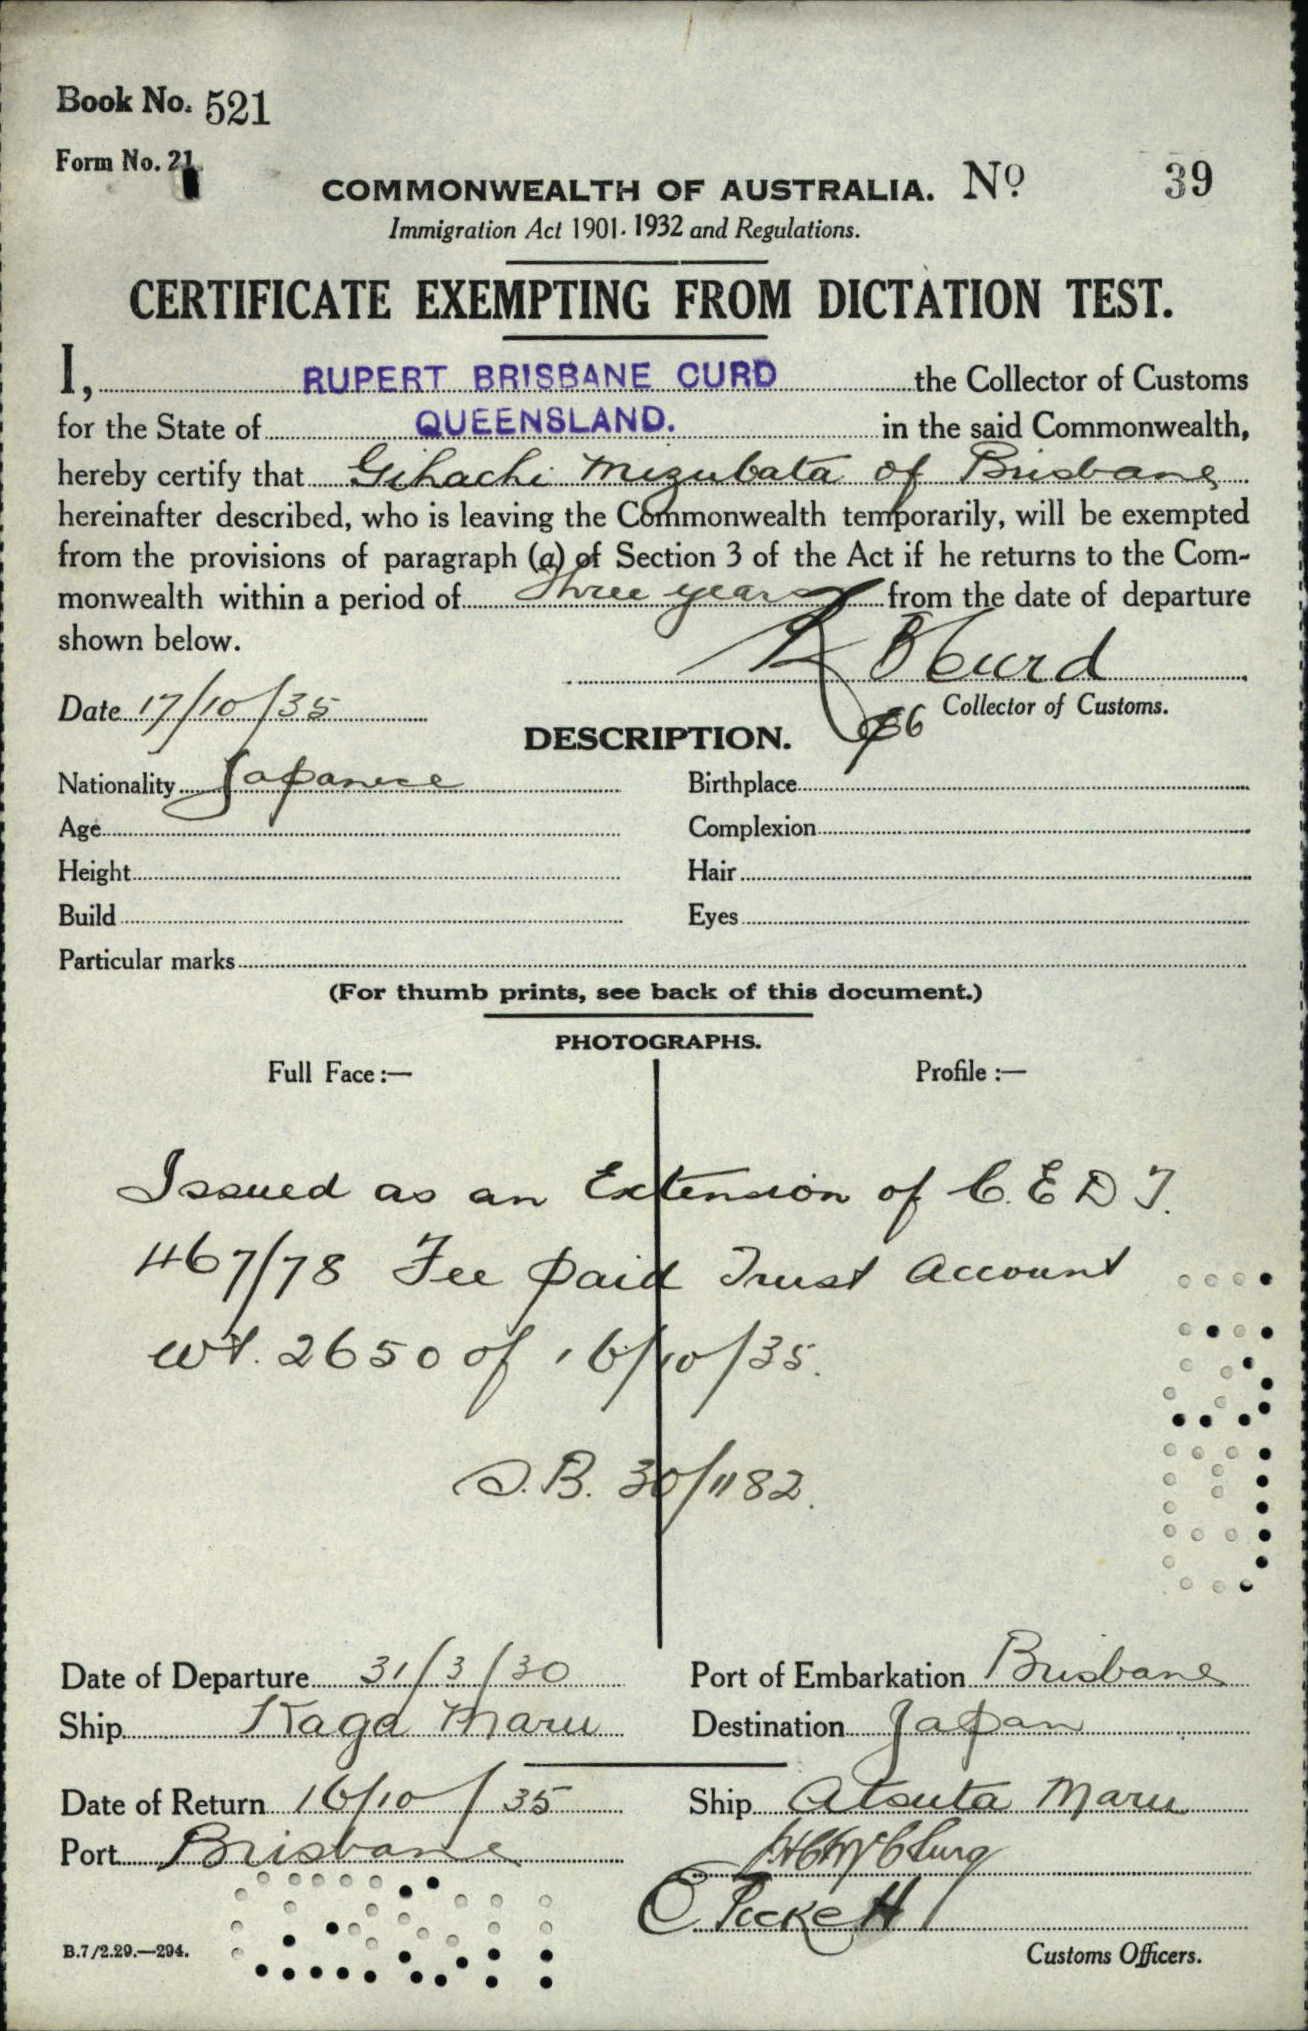 Book No. 521
Form No. 21
COMMONWEALTH OF AUSTRALIA. No 39
Immigration Act 1901-1932 and Regulations.
CERTIFICATE EXEMPTING FROM DICTATION TEST.
I, RUPERT BRISBANE CURD the Collector of Customs
for the State of QUEENSLAND. in the said Commonwealth,
hereby certify that Gihachi Mizubata of Brisbane
hereinafter described, who is leaving the Commonwealth temporarily, will be exempted
from the provisions of paragraph (a) of Section 3 of the Act if he returns to the Com-
monwealth within a period of three years from the date of departure
shown below.
R B Curd
Date 17/10/35
Collector of Customs.
DESCRIPTION.
Nationality Japanese Birthplace
Age Complexion
Height Hair
Build Eyes
Particular marks
(For thumb prints, see back of this document.)
PHOTOGRAPHS.
Full Face :— Profile :—
Issued as an Extension of C.E.D.T.
467/78 Fee paid Trust Account
2650 of 16/10/35.
S.B. 30/1182.
Date of Departure 31/3/30 Port of Embarkation Brisbane
Ship Kaga Maru Destination Japan
Date of Return 16/10/35 Ship Atsuta Maru
Port Brisbane
B.7/2.29.—294. Customs Officers.